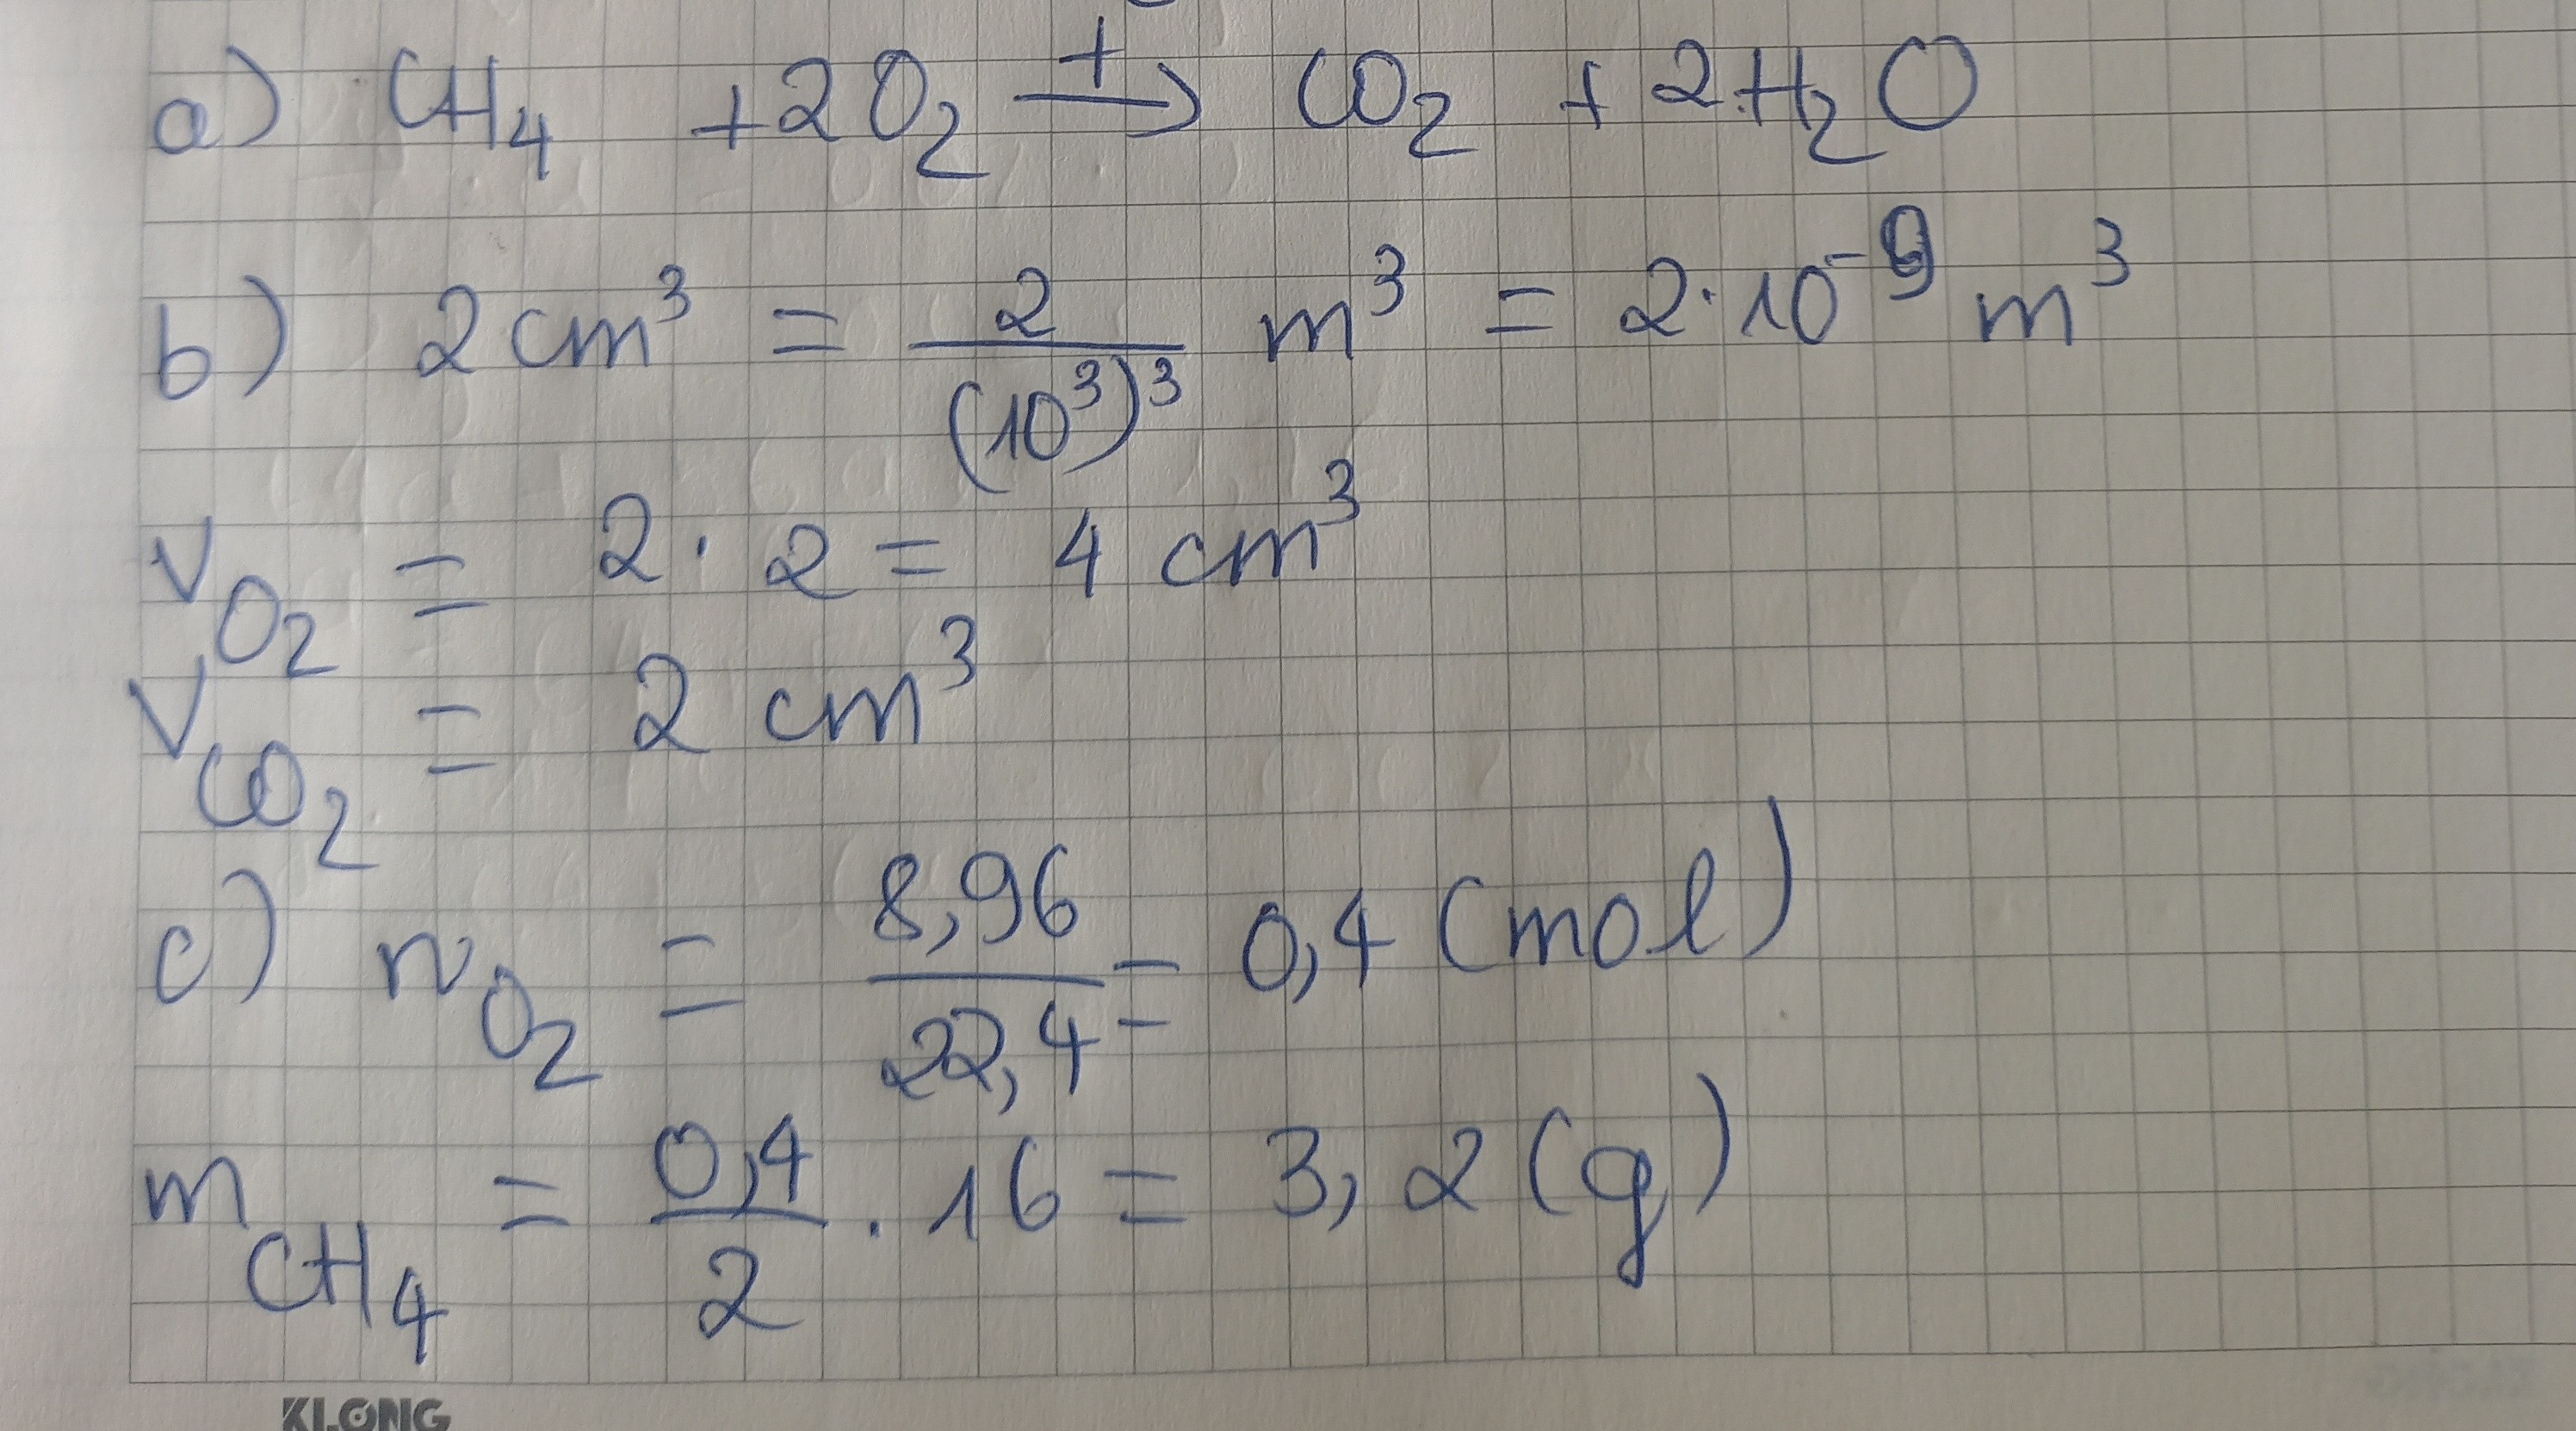 a) CH₄ +2O₂ →t CO₂ + 2H₂O
b) 2cm³ = 2/(10³)³ m³ = 2·10⁻⁹ m³
V_O₂ = 2 · 2 = 4 cm³
V_CO₂ = 2 cm³
c) n_O₂ = 8,96/22,4 = 0,4 (mol)
m_CH₄ = 0,4/2 . 16 = 3,2 (g)
KLONG